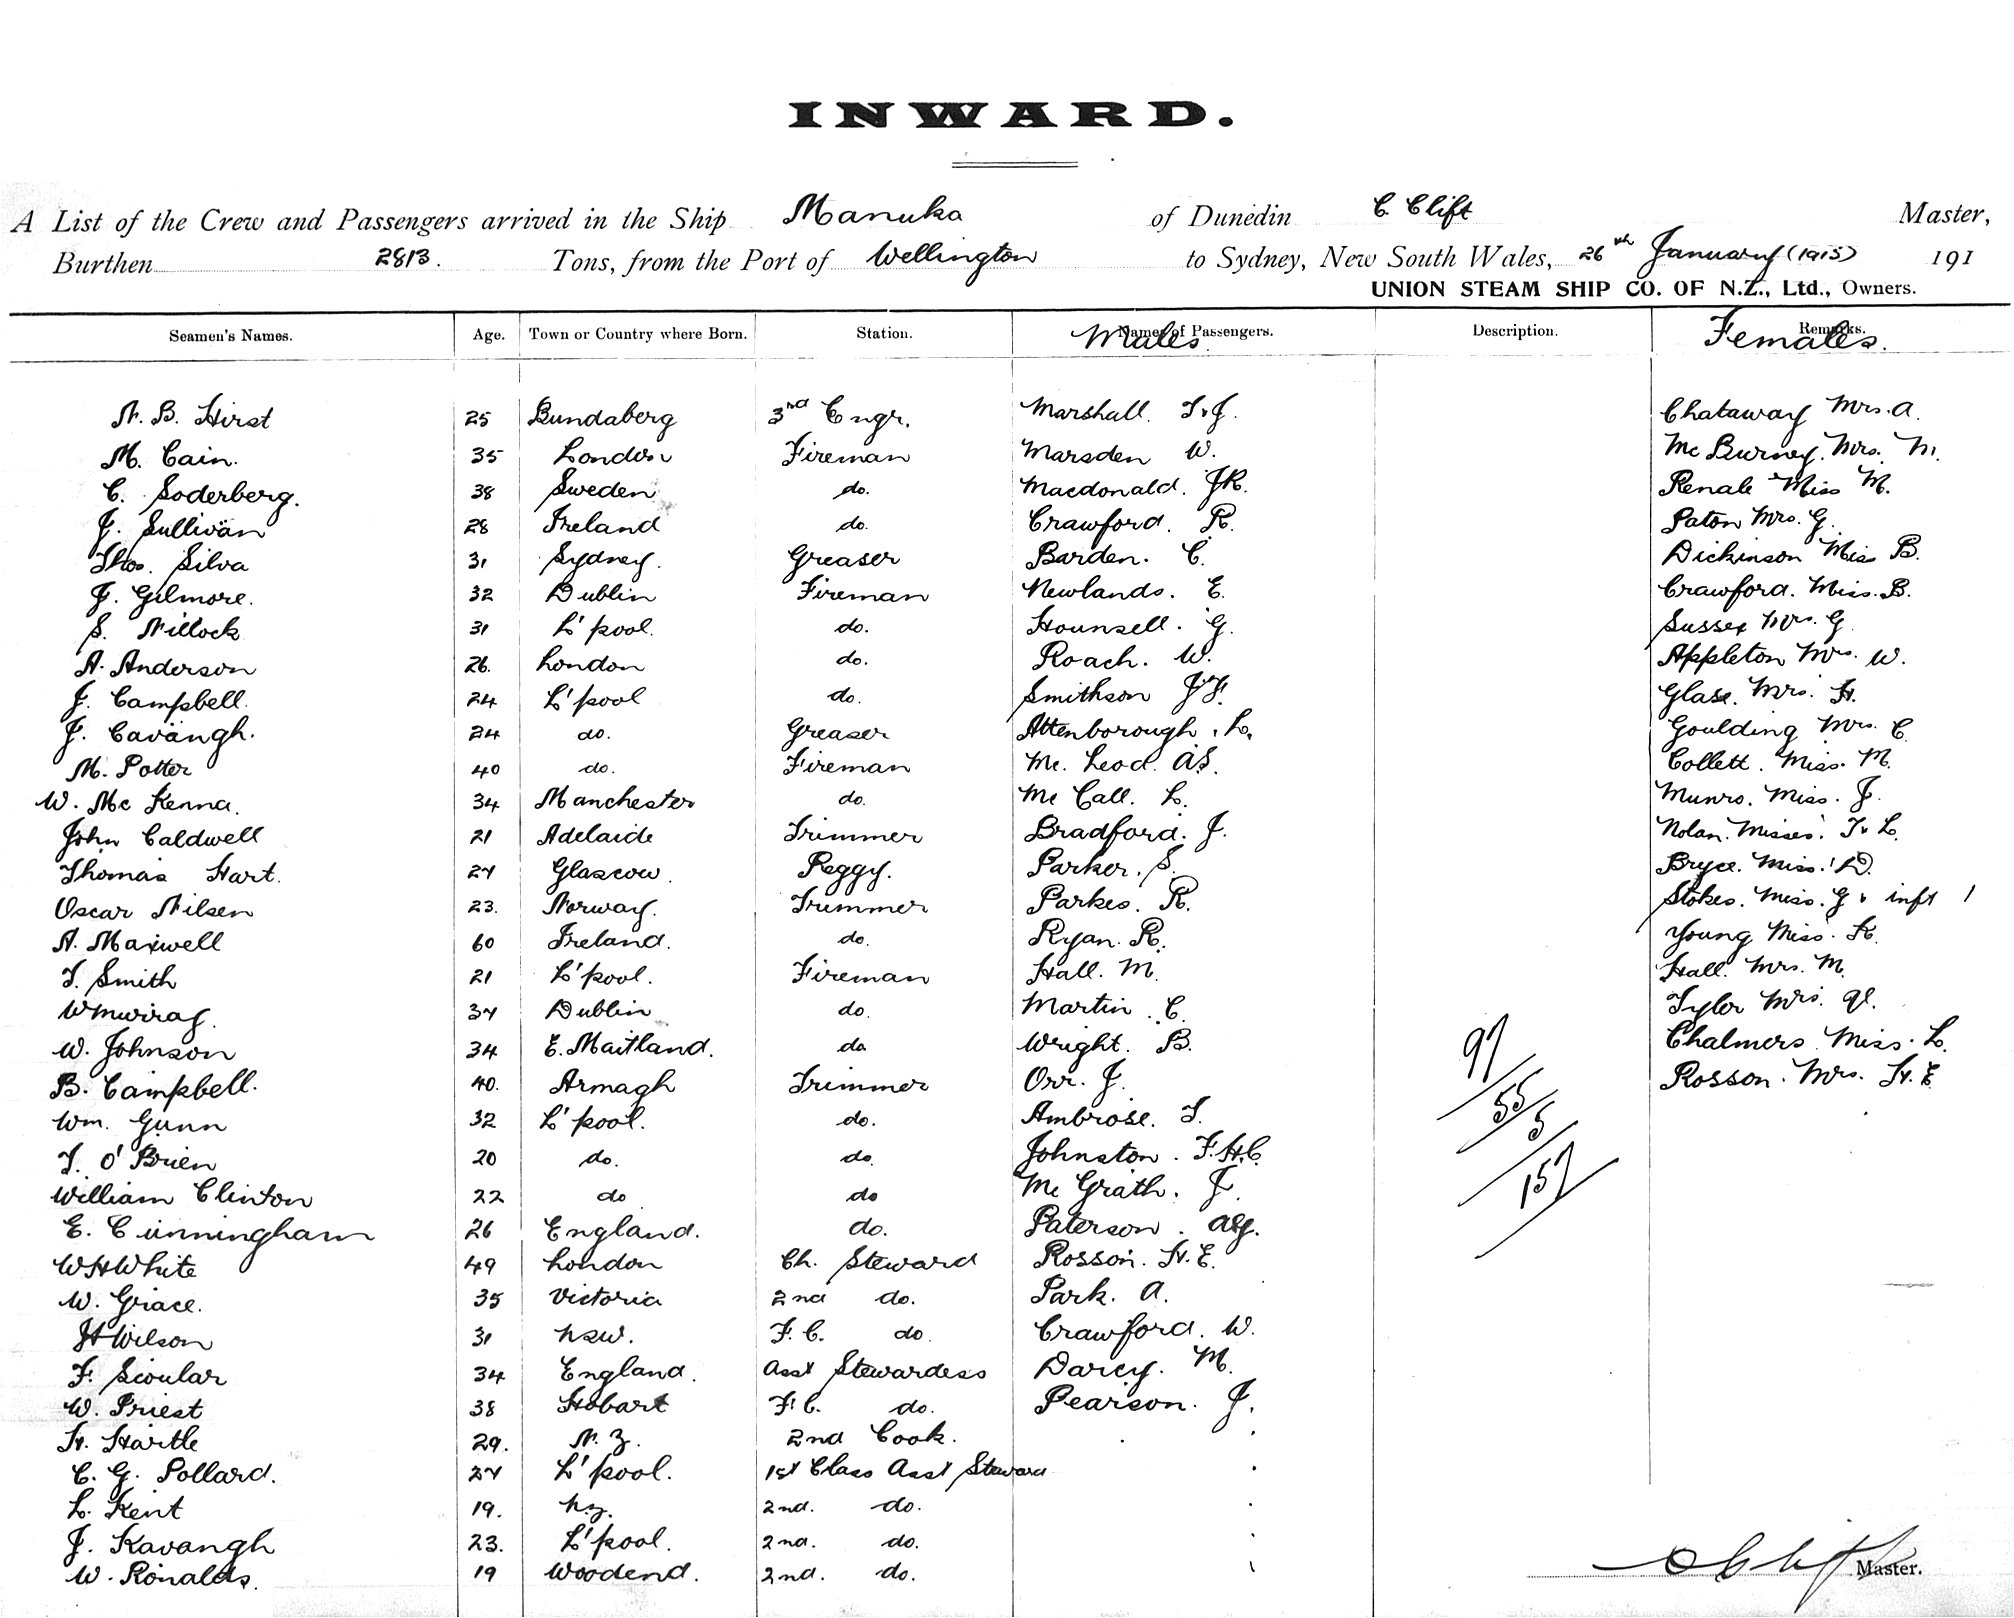 INWARD.
A List of the Crew and Passengers arrived in the Ship Manuka of Dunedin C. Clift Master,
Burthen 2813. Tons, from the Port of Wellington to Sydney, New South Wales, 26th January (1915) 191
UNION STEAM SHIP CO. OF N.Z., Ltd., Owners.
Seamen's Names. Age. Town or Country where Born. Station. Names of Passengers. Males Description. Remarks. Females.
N. B. Hirst 25 Bundaberg 3rd Engr. Marshall. T.J. Chataway Mrs. A.
M. Cain. 35 London Fireman Marsden W. Mc Burney. Mrs. M.
C. Soderberg. 38 Sweden do. Macdonald. J.R. Miss M.
J. Sullivan 28 Ireland do. Crawford. R. Paton Mrs. G.
Thos. Silva 31 Sydney. Greaser Barden. C. Dickinson Miss B.
J. Gilmore. 32 Dublin Fireman Newlands. E. Crawford. Miss. B.
S. Nillock 31 L'pool. do. Hounsell. G. Sussex Mrs. G.
A. Anderson 26. London do. Roach. W. Appleton Mrs. W.
J. Campbell. 24 L'pool do. Smithson J.F. Glase. Mrs. H.
J. Cavangh. 24 do. Greaser Attenborough. L. Goulding Mrs. C
M. Potter 40 do. Fireman Mc. Leod. A.S. Collett. Miss. M.
W. Mc Kenna. 34 Manchester do. Mc Call. L. Munro. Miss. J.
John Caldwell 21 Adelaide Trimmer Bradford. J. Nolan. Misses. T & L.
Thomas Hart. 27 Glascow. Peggy. Parker. S. Bryce. Miss. D.
Oscar Nilsen 23. Norway. Trimmer Parkes. R. Stokes. Miss. G & inft 1
A. Maxwell 60 Ireland. do. Ryan. R. Young Miss. K.
T. Smith 21 L'pool. Fireman Hall. M. Hall. Mrs. M.
W Murray. 37 Dublin do. Martin. C. Tyler Mrs.
W. Johnson 34 E. Maitland. do Wright. B. Chalmers Miss. L.
B. Campbell. 40. Armagh Trimmer Orr. J. Rosson. Mrs. H. E
Wm. Gunn 32 L'pool. do. Ambrose. T.
T. O'Brien 20 do. do. Johnston. F.H.C.
William Clinton 22 do do Mc Grath. J.
E. Cunningham 26 England. do. Paterson.
W H White 49 London Ch. Steward Rosson. H. E.
W. Grace. 35 Victoria 2nd do. Park. A.
H Wilson 31 NSW. F. C. do. Crawford. W.
F. Scoular 34 England. Asst Stewardess Darcy. M.
W. Priest 38 Hobart F. C. do. Pearson. J.
H. Hartle 29. N. Z. 2nd Cook.
C. G. Pollard. 27 L'pool. 1st Class Asst Steward
L. Kent 19. N.Z. 2nd. do.
J. Kavangh 23. L'pool. 2nd. do.
W. Ronalds. 19 Woodend. 2nd. do.
97
55
5
157
C Clift Master.